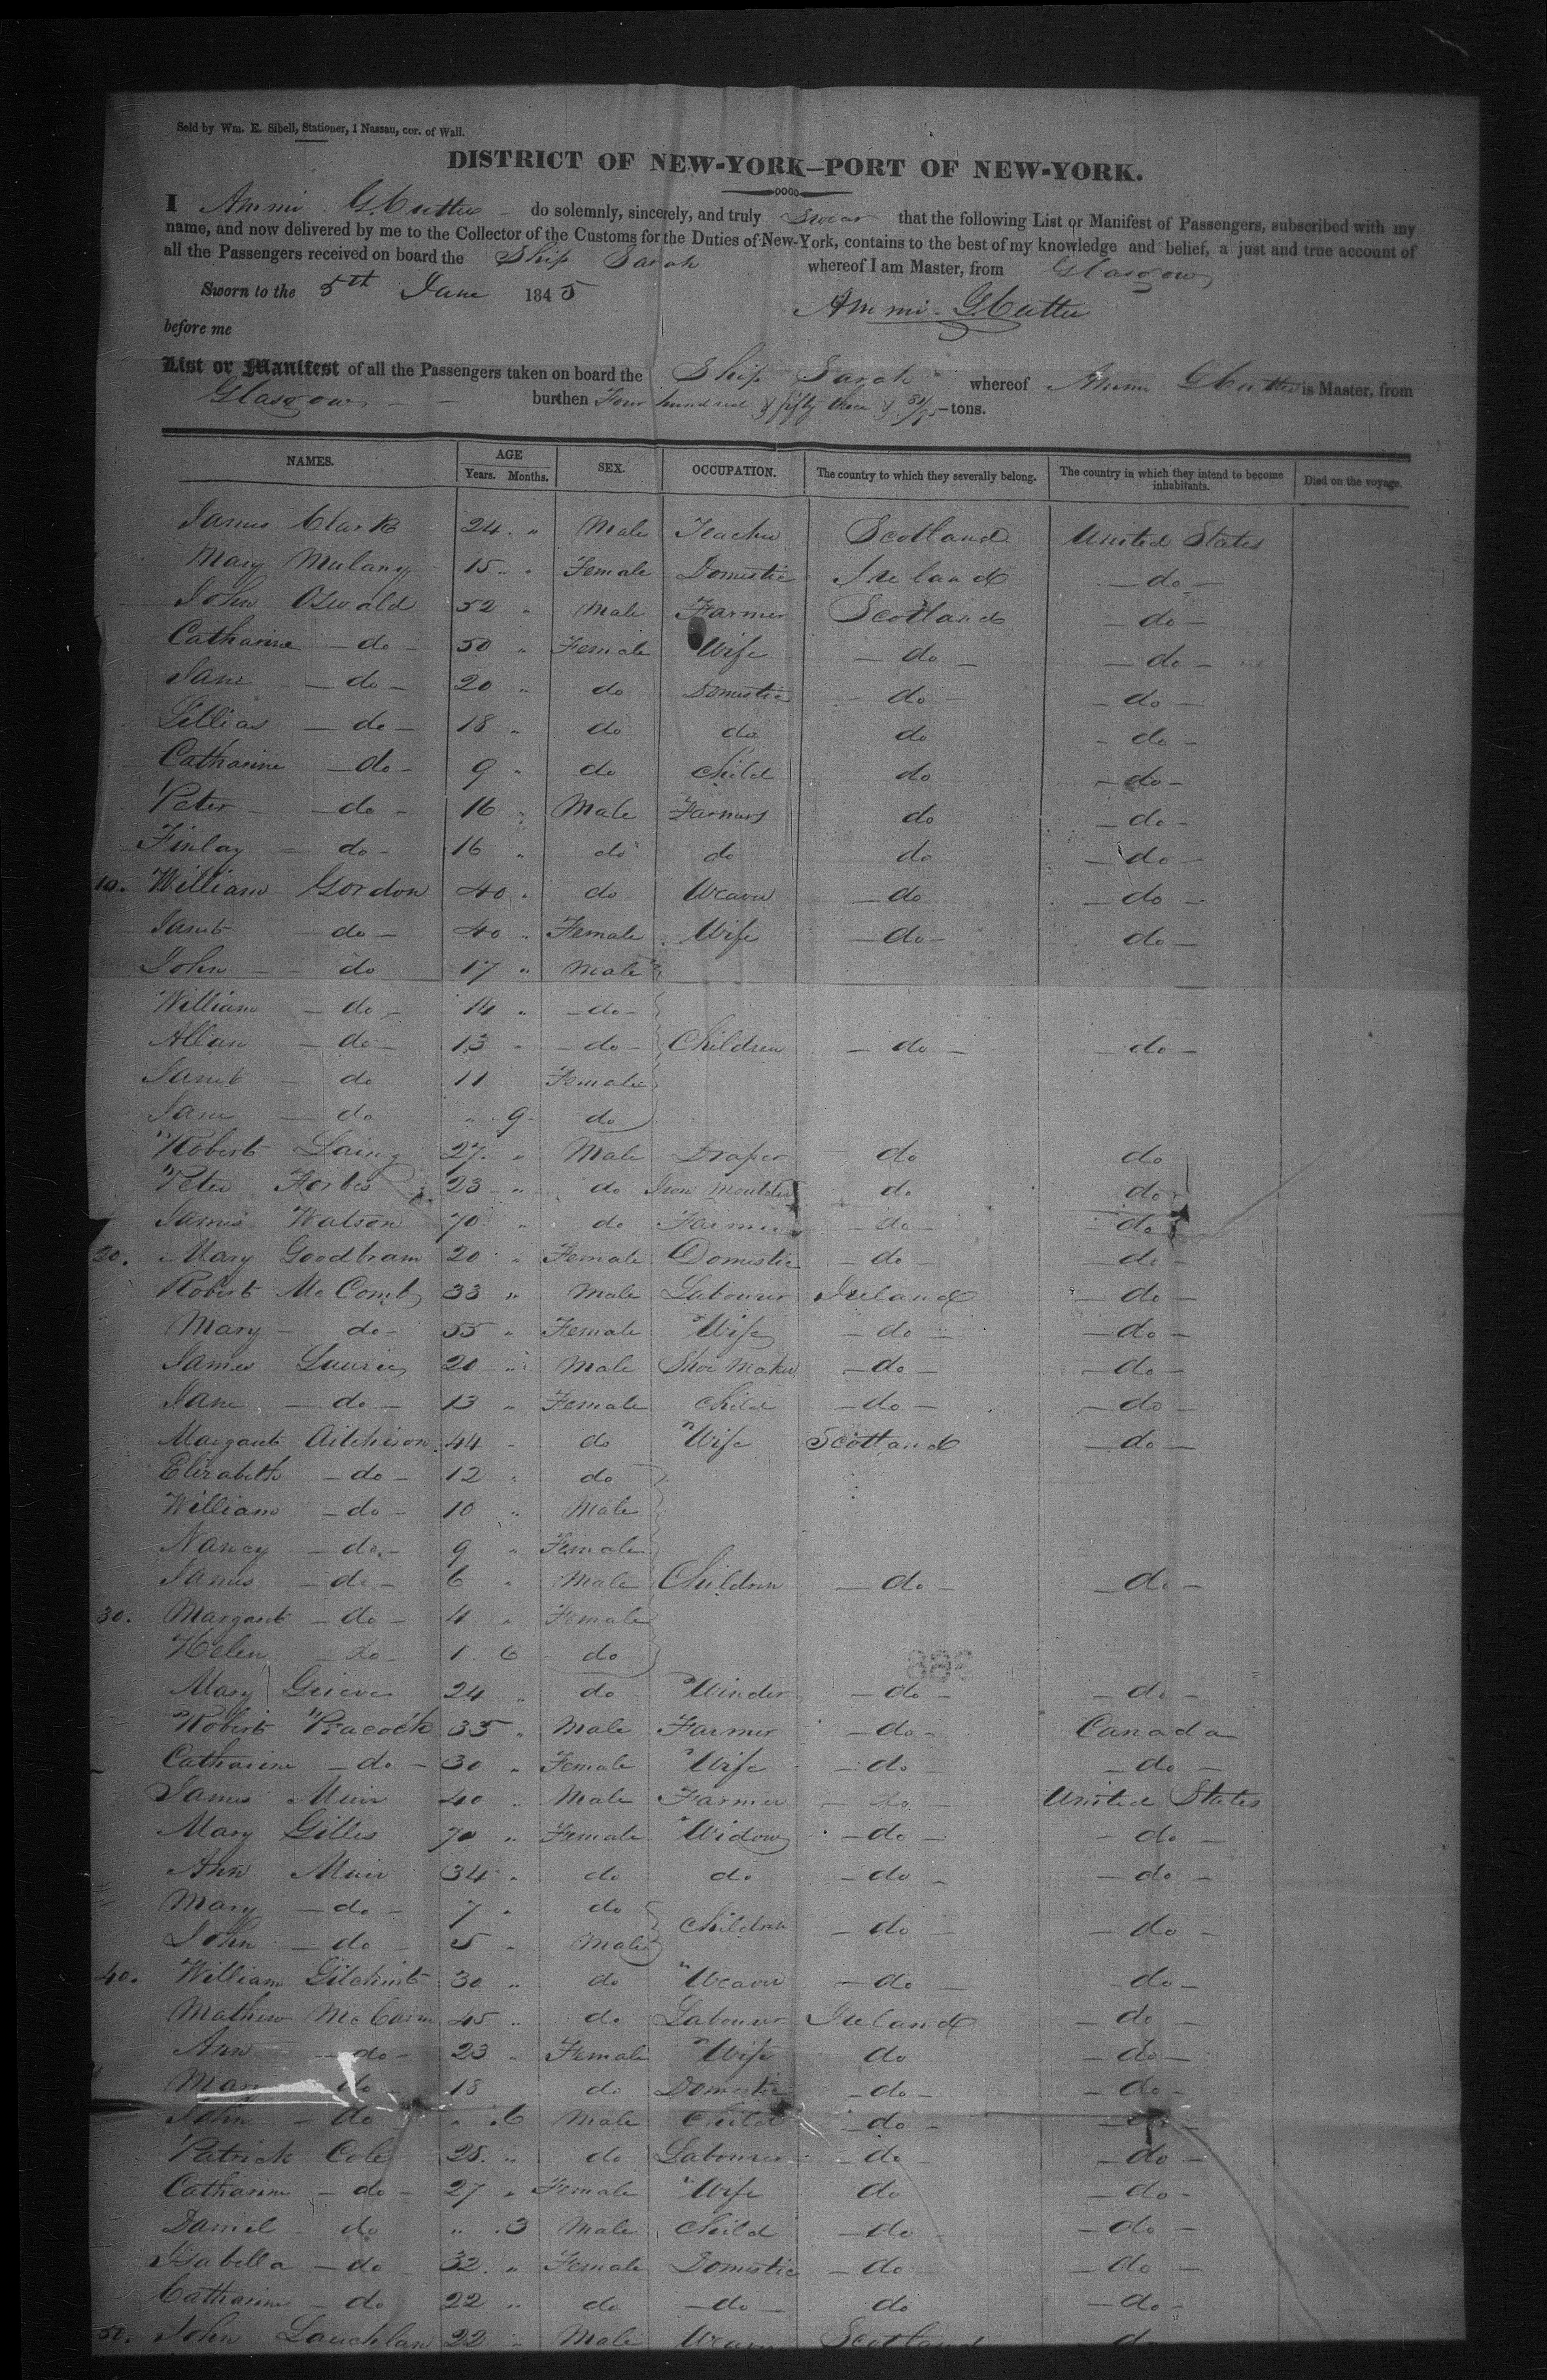 Sold by Wm. E. Sibell, Stationer, 1 Nassau, cor. of Wall.
DISTRICT OF NEW-YORK—PORT OF NEW-YORK.
I Ammi G. Cutter do solemnly, sincerely, and truly Swear that the following List or Manifest of Passengers, subscribed with my
name, and now delivered by me to the Collector of the Customs for the Duties of New-York, contains to the best of my knowledge and belief, a just and true account of
all the Passengers received on board the Ship Sarah whereof I am Master, from Glasgow
Sworn to the 5th June 1845 Ammi G. Cutter
before me
List or Manifest of all the Passengers taken on board the Ship Sarah whereof Ammi G Cutter is Master, from
Glasgow burthen Four hundred & fifty three & /95 tons.
NAMES. AGE Years. Months. SEX. OCCUPATION. The country to which they severally belong. The country in which they intend to become inhabitants. Died on the voyage.
James Clark 24 " Male Teacher Scotland United States
Mary Mulany 15 " Female Domestic Ireland — do —
John Oswald 52 " Male Farmer Scotland — do —
Catharine — do — 50 " Female Wife — do — — do —
Jane — do — 20 " do Domestic do — do —
Lillias — do — 18 " do do do - do -
Catharine — do — 9 " do Child do — do —
Peter — do - 16 " Male Farmers do — do -
Finlay — do - 16 " do do do — do —
10. William Gordon 40 " do Weaver — do — do —
Janet — do — 40 " Female Wife — do — do —
John — do 17 " Male
William — do — 14 " — do —
Allan — do — 13 " — do — Children — do — — do —
Janet — do 11 Female
Jane — do " 9 do
Robert Laing 27 " Male Draper do do
Peter Forbes 23 " do Iron Moulder do do
James Watson 70 " do Farmer — do — — do
20. Mary Goodbram 20 " Female Domestic — do — — do —
Robert McComb 33 " Male Labourer Ireland — do —
Mary — do — 55 " Female Wife — do — — do —
James Laurie 20 " Male Shoe Maker — do — — do —
Jane — do — 13 " Female Child — do — — do —
Margaret Aitchison 44 " do Wife Scotland — do —
Elizabeth — do — 12 " do
William — do — 10 " Male
Nancy — do — 9 " Female
James — do — 6 " Male Children — do — — do —
30. Margaret — do — 4 " Female
Helen — do — 1 6 do
Mary Grieve 24 " do Winder — do — — do —
Robert Peacock 35 " Male Farmer — do — Canada
Catharine — do — 30 " Female Wife — do — — do —
James Muir 40 " Male Farmer — do — United States
Mary Gillis 70 " Female Widow — do — — do —
Ann Muir 34 " do do — do — — do —
Mary — do — 7 " do
John — do 5 " Male Children — do — — do —
40. William Gilchrist 30 " do Weaver — do — — do —
Mathew 45 " do Labourer Ireland — do —
Ann — do — 23 " Female Wife do — do —
Mary do 18 do Domestic — do — — do —
John — do " 6 Male Child — do — — do —
Patrick Cole 28 " do Labourer — do — — do —
Catharine — do — 27 " Female Wife do — do —
Daniel do " 3 Male Child — do — do —
Isabella — do 32 " Female Domestic — do — do —
Catharine — do 22 " do — do — do — do —
50. John Lauchlan 22 " Male Weaver Scotland do